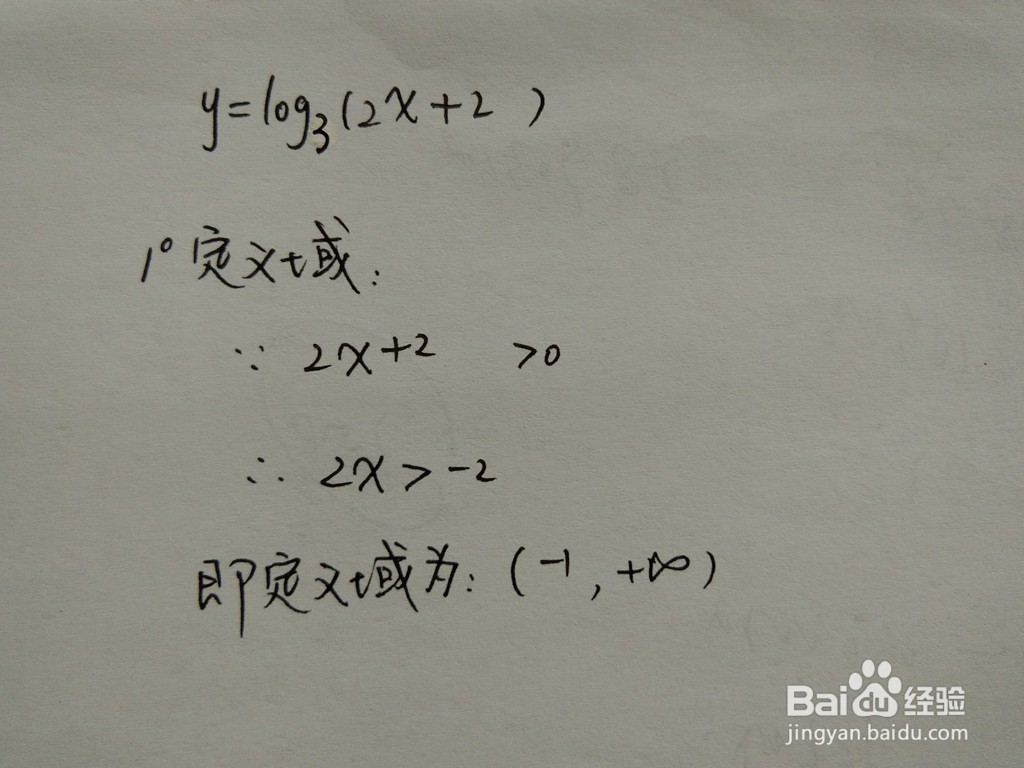 y=log₃(2x+2 )
1° 定义域:
∵ 2x+2 >0
∴ 2x>-2
即定义域为: (-1, +∞)
Baidu经验
jingyan.baidu.com